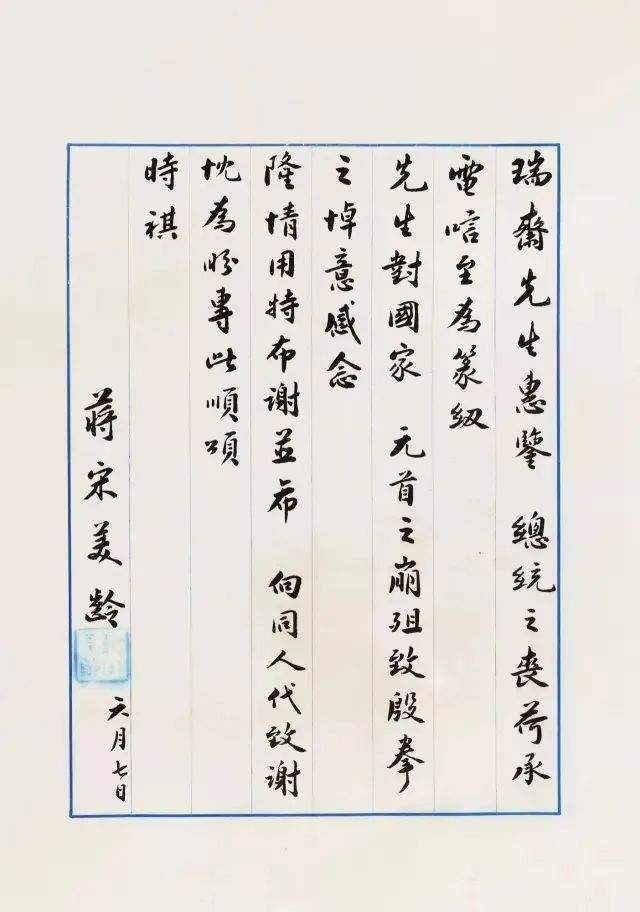 瑞齋先生惠鑒 總統之喪荷承
電唁至為篆紉
先生對國家 元首之崩殂致殷拳
之悼意感念
隆情用特布謝並希 向同人代致謝
忱為盼專此順頌
時祺
蔣宋美齡
六月七日